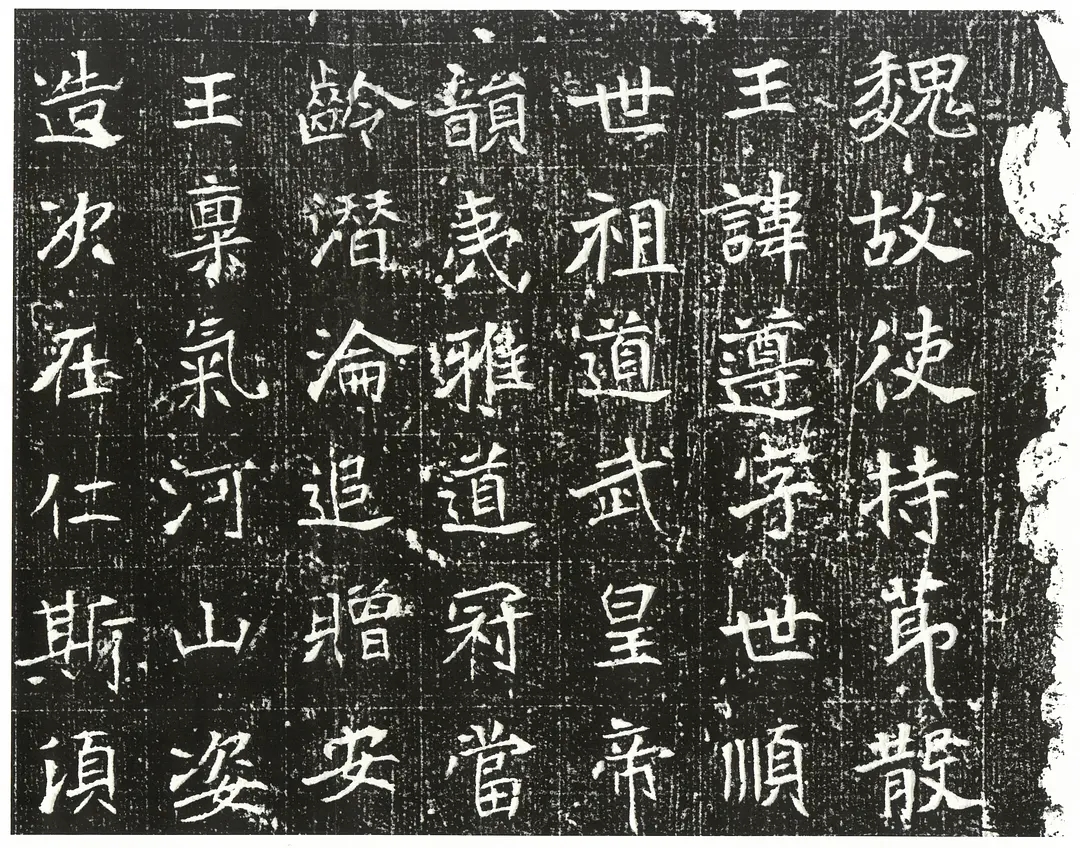 魏故使持莭散
王諱遵字世順
世祖道武皇帝
韻夷雅道冠當
齡潛淪追贈安
王稟氣河山姿
造次在仁斯須